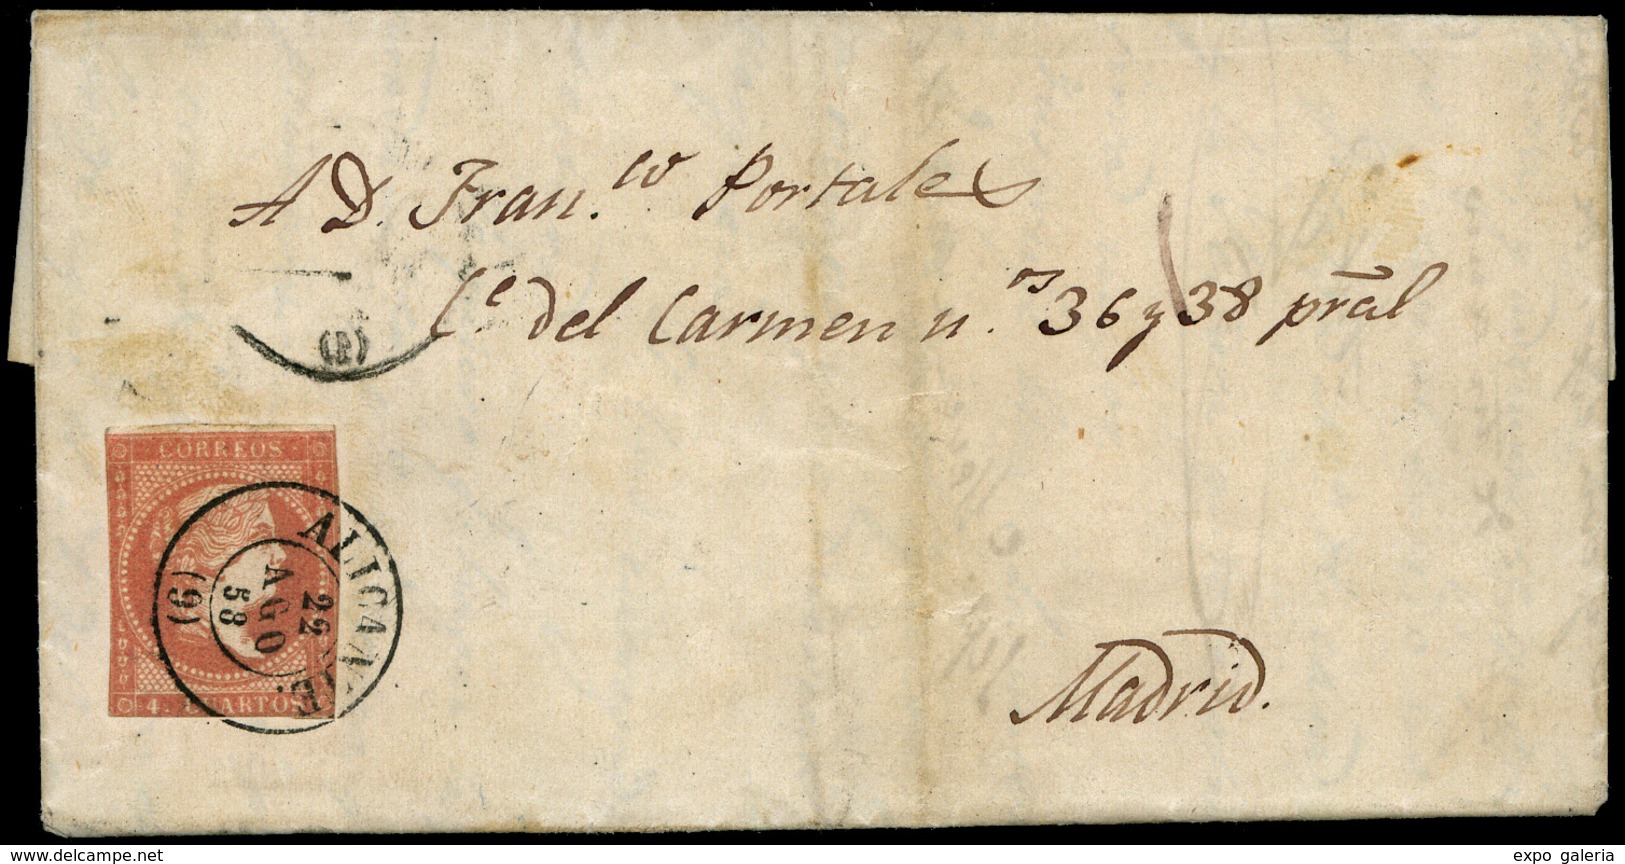 A D. Fran.co Portales
Ce del Carmen n.os 36 y 38 pral
(P)
CORREOS
ALICANTE.
22
AGO
58
(9)
4. CUARTOS
Madrid.
delcampe.net
expo galeria